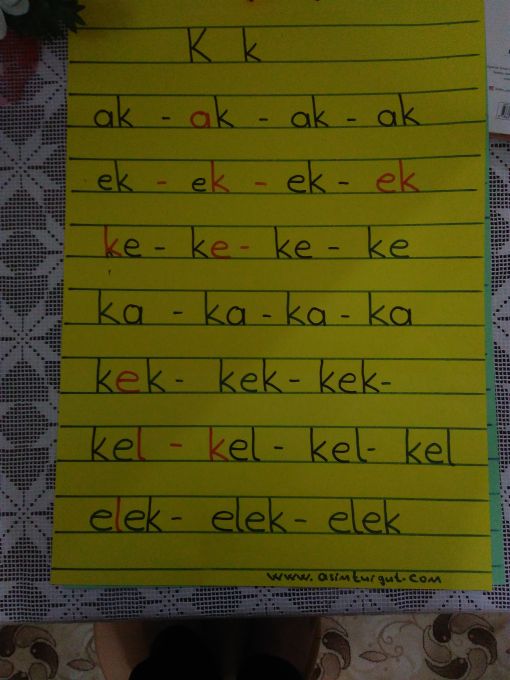 K k
ak - ak - ak - ak
ek - ek - ek - ek
ke - ke - ke - ke
ka - ka - ka - ka
kek - kek - kek-
kel - kel - kel- kel
elek - elek - elek
www.asimturgut.com